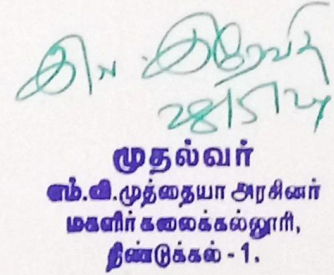 இரேவதி
28/5/24
முதல்வர்
எம்.வி.முத்தையா அரசினர்
மகளிர் கலைக்கல்லூரி,
திண்டுக்கல் - 1.